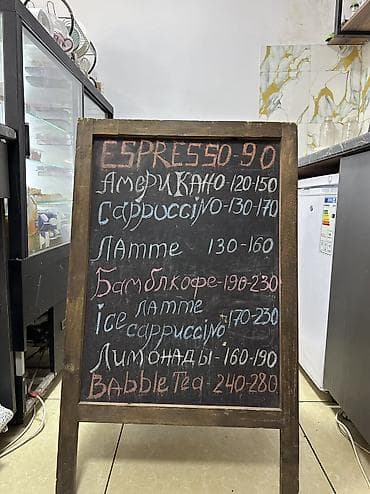 ESPRESSO-90
АмериКАНО-120-150
Cappuccino-130-170
ЛАтте 130-160
Бамблкофе-190-230
ice лАтте
cappuccino 170-230
Лимонады-160-190
BAbbleTea-240-280